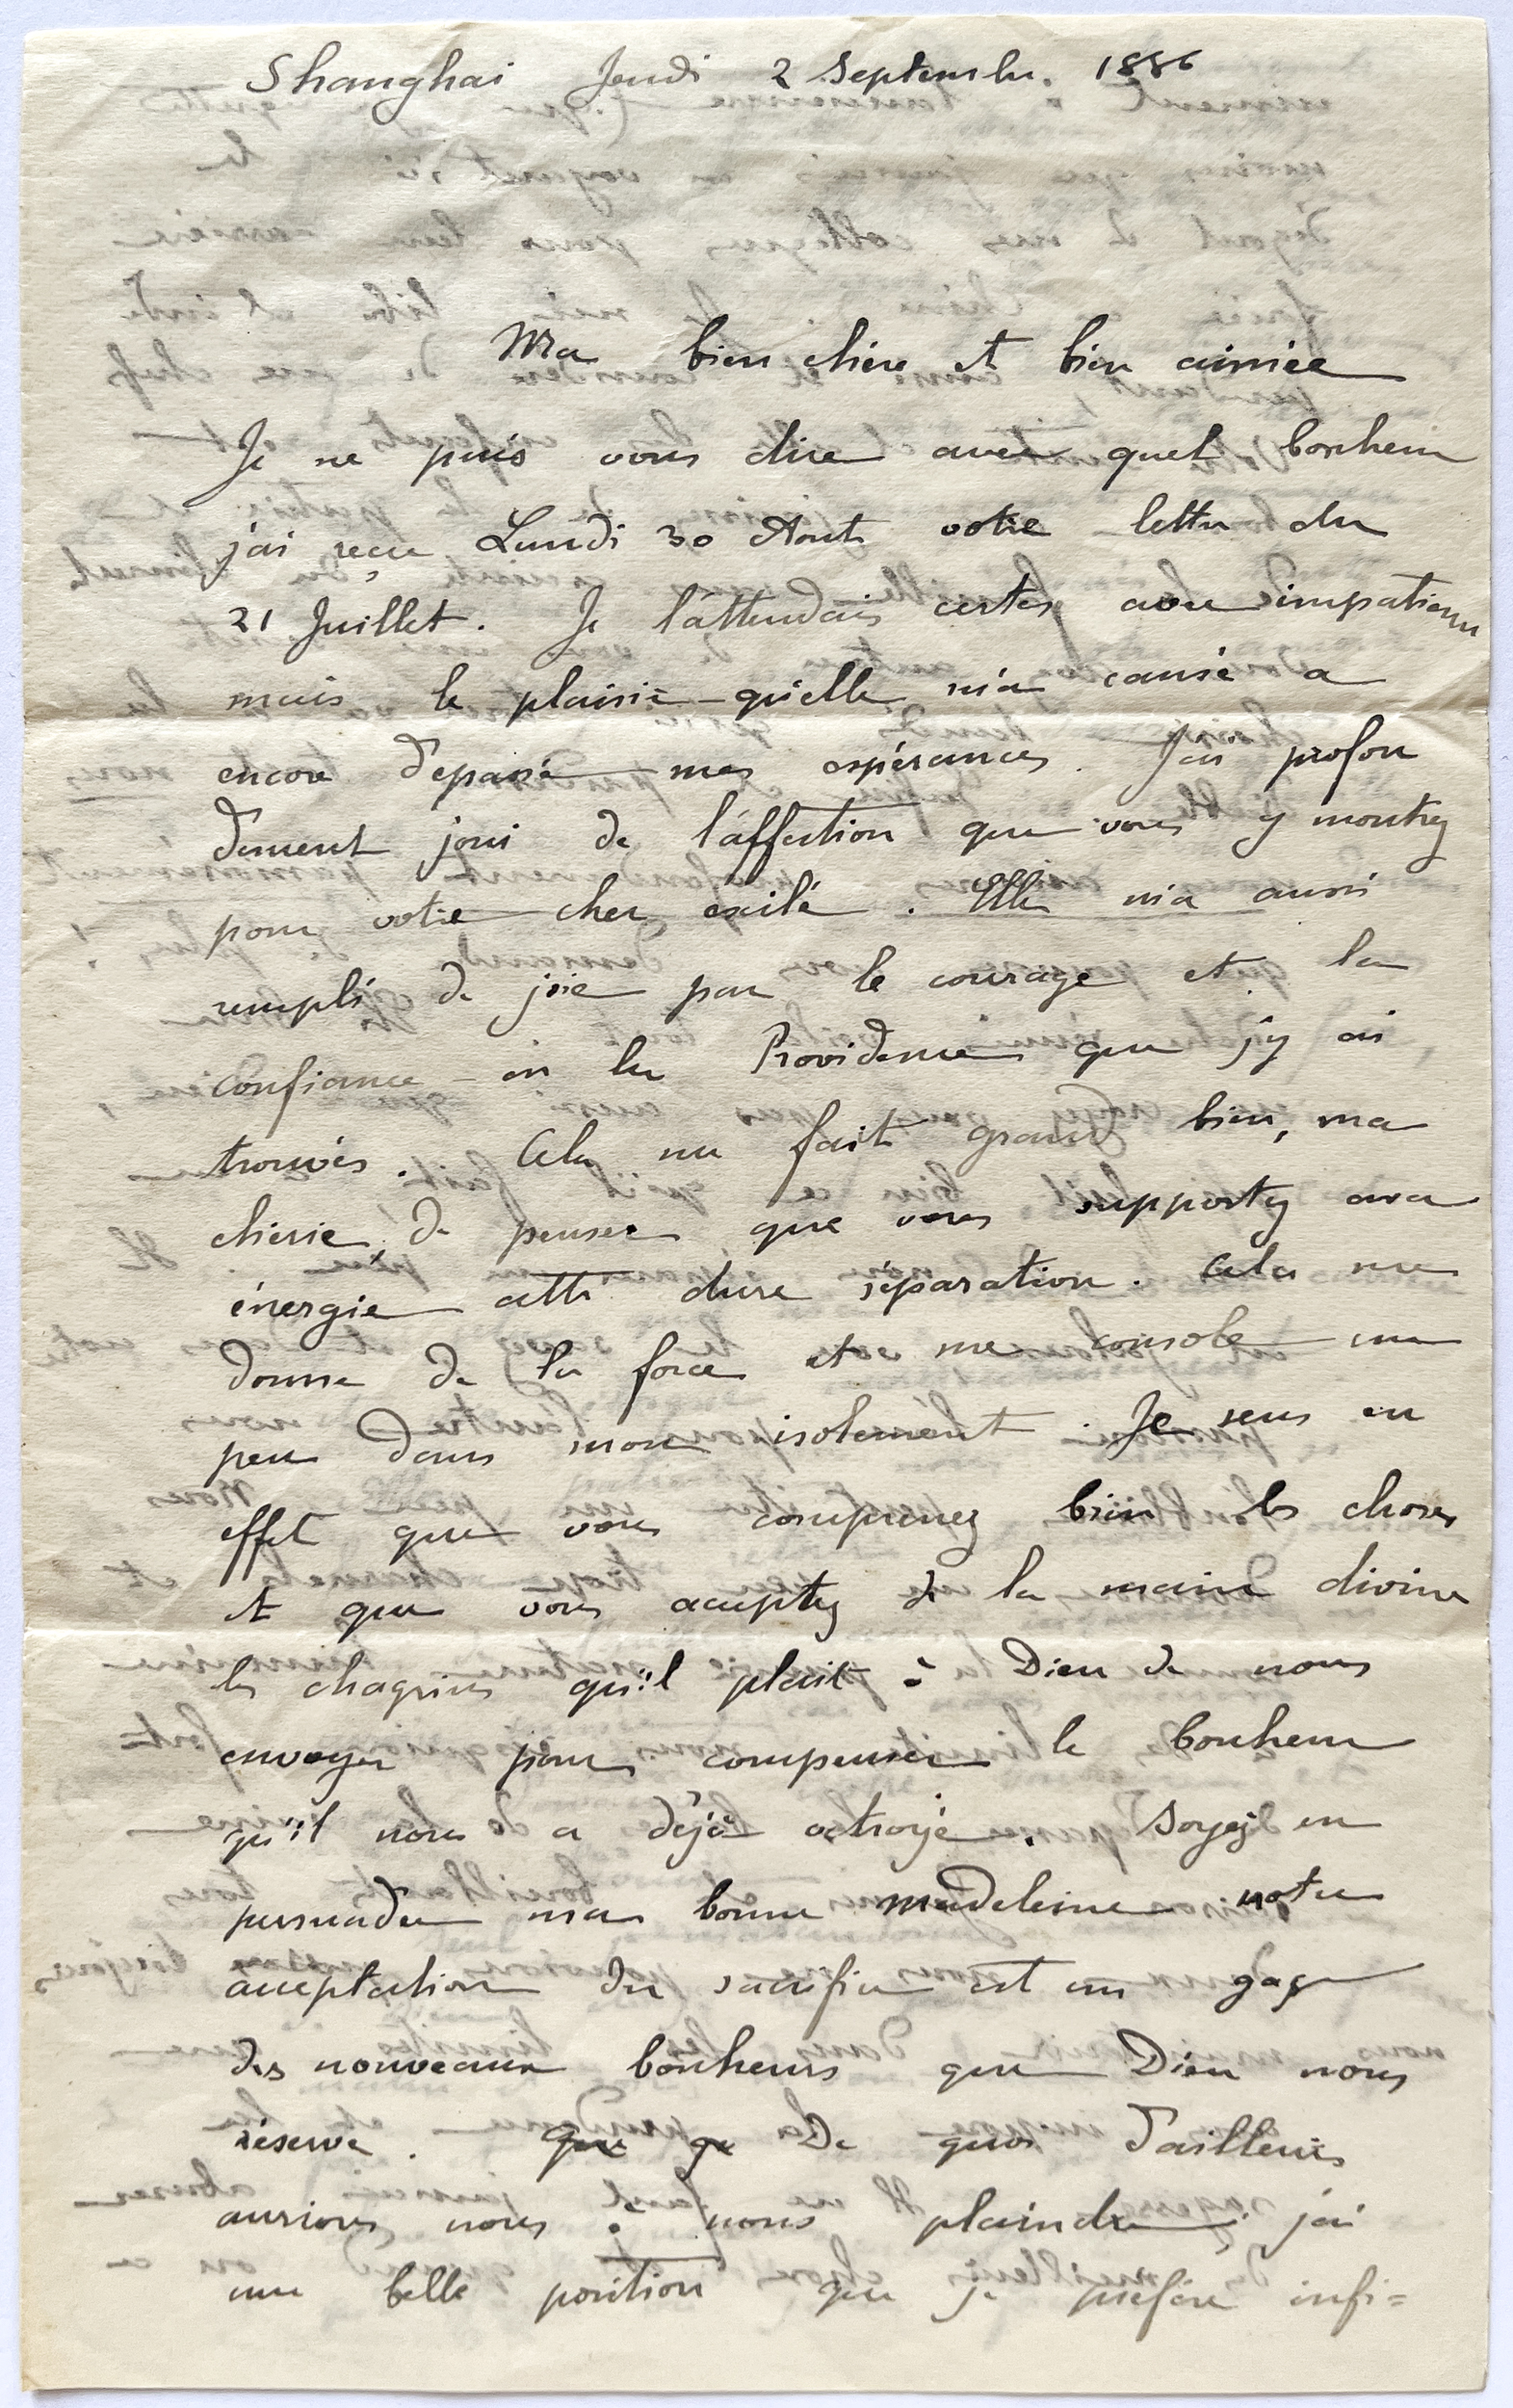 Shanghai Jeudi 2 Septembre. 1886
Ma bien chère et bien aimée
Je ne puis vous dire avec quel bonheur
j'ai reçu Lundi 30 Aout votre lettre du
21 Juillet. Je l'attendais certes avec impatience
mais le plaisir qu'elle m'a causé a
encore dépassé mes espérances. J'ai profon
dement joui de l'affection que vous y montrez
pour votre cher exilé. Elle m'a aussi
rempli de joie par le courage et la
confiance en la Providence que j'y ai
trouvés. Cela me fait grand bien, ma
chérie, de penser que vous supportez avec
énergie cette dure séparation. Cela me
donne de la force et me console un
peu dans mon isolement. Je sens en
effet que vous comprenez bien les choses
et que vous acceptez de la main divine
les chagrins qu'il plait à Dieu de nous
envoyer pour compenser le bonheur
qu'il nous a déjà octroyé. Soyez en
persuadée ma bonne Madeleine notre
acceptation du sacrifice est un gage
des nouveaux bonheurs que Dieu nous
réserve. De quoi d'ailleurs
aurions nous à nous plaindre, j'ai
une belle position que je préfère infi=